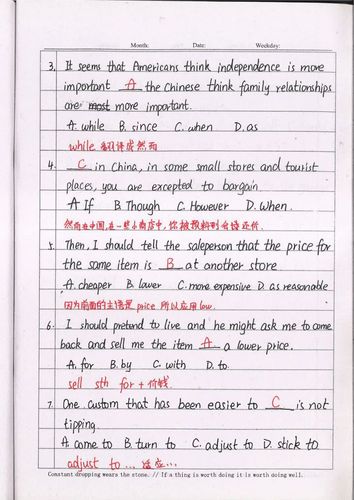 Month: Date: Weekday:
3. It seems that Americans think independence is more
important A the Chinese think family relationships
are most more important.
A. while B. since C. when D. as
while 翻译成然而
4. C in China, in some small stores and tourist
places, you are excepted to bargain
A If B Though C. However D. When.
然而在中国,在一些小商店中,你被预料到会话还价.
5. Then, I should tell the saleperson that the price for
the same item is B at another store.
A. cheaper B. lower C. more expensive D. as reasonable
因为前面的主语是 price 所以应用low.
6. I should pretend to live and he might ask me to come
back and sell me the item A a lower price.
A. for B. by C. with D. to
sell sth for + 价钱.
7. One custom that has been easier to C is not
tipping.
A. come to B. turn to C. adjust to D. stick to
adjust to ... 适应...
Constant dropping wears the stone. // If a thing is worth doing it is worth doing well.